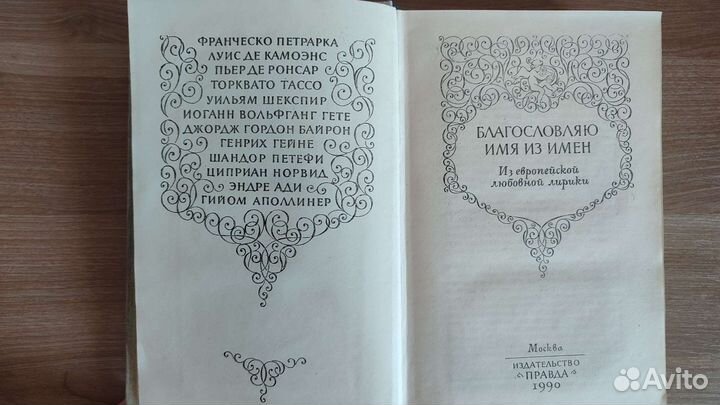 ФРАНЧЕСКО ПЕТРАРКА
ЛУИС ДЕ КАМОЭНС
ПЬЕР ДЕ РОНСАР
ТОРКВАТО ТАССО
УИЛЬЯМ ШЕКСПИР
ИОГАНН ВОЛЬФГАНГ ГЕТЕ
ДЖОРДЖ ГОРДОН БАЙРОН
ГЕНРИХ ГЕЙНЕ
ШАНДОР ПЕТЕФИ
ЦИПРИАН НОРВИД
ЭНДРЕ АДИ
ГИЙОМ АПОЛЛИНЕР
БЛАГОСЛОВЛЯЮ
ИМЯ ИЗ ИМЕН
Из европейской
любовной лирики
Москва
ИЗДАТЕЛЬСТВО
ПРАВДА
1990
Avito